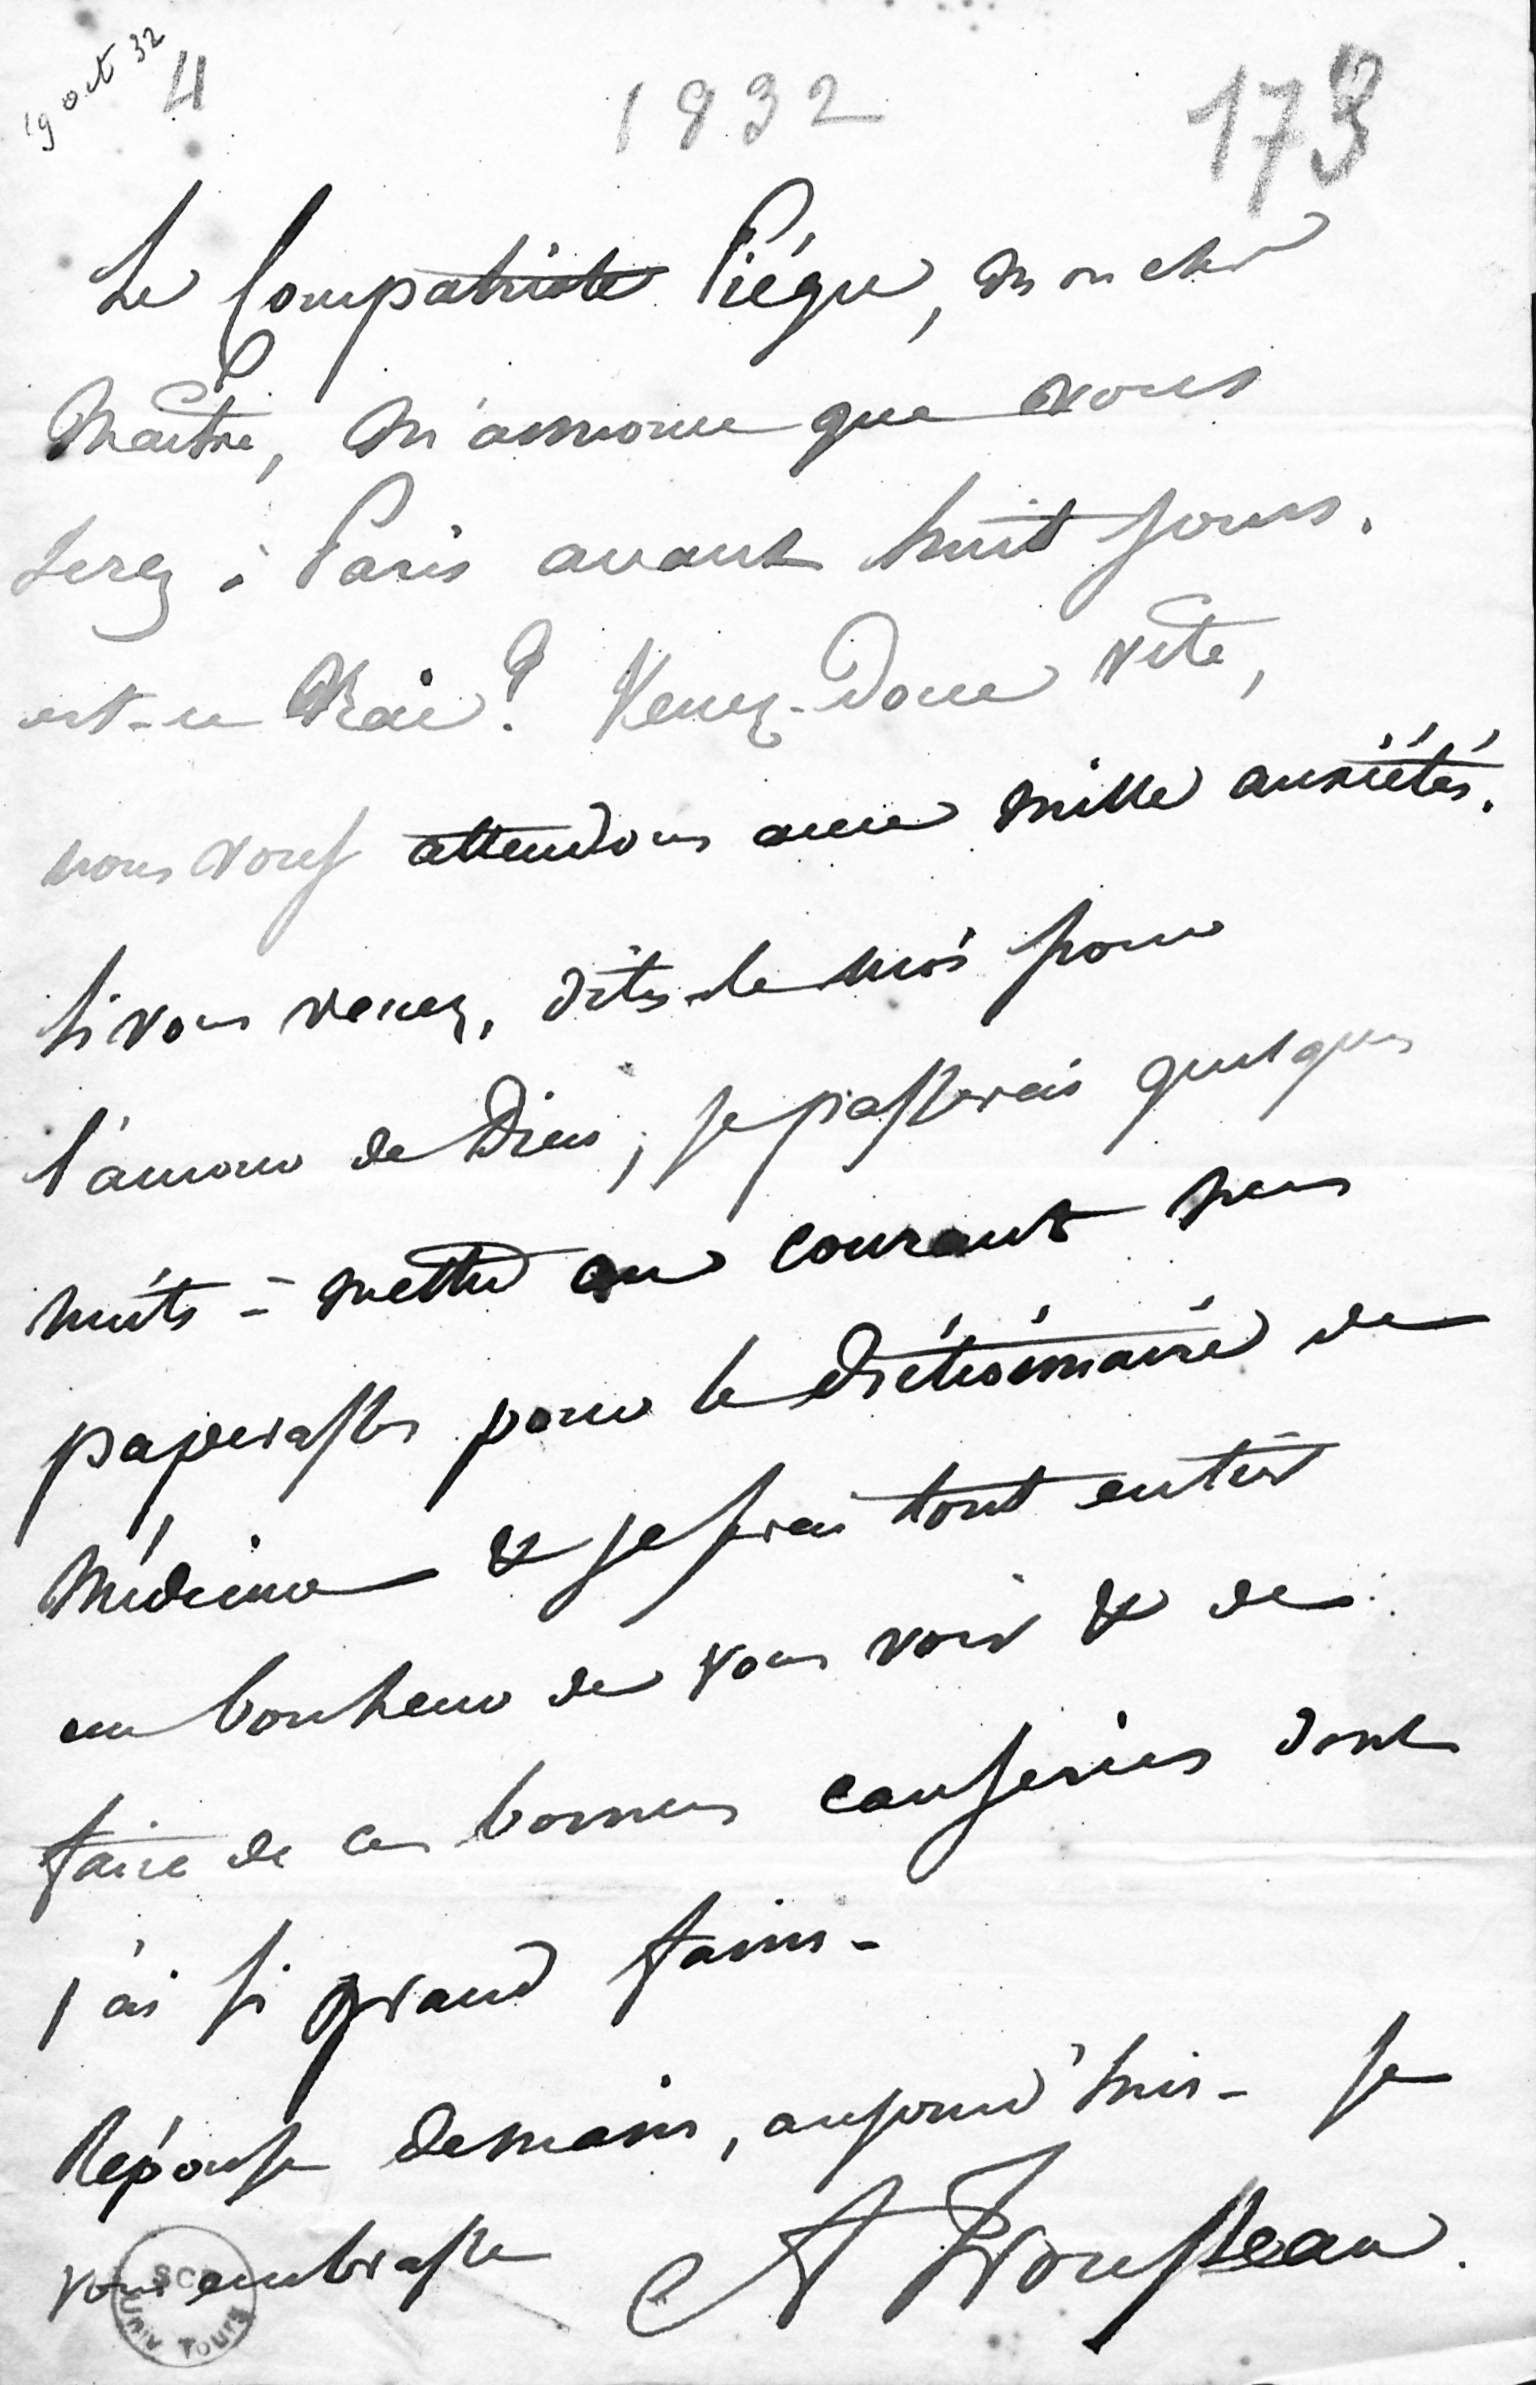 19 oct 32
4
1832
173
Le Compatriote Piégu, mon cher
Maître, m'annonce que vous
serez à Paris avant huit jours.
est-ce vrai? Venez-donc vite,
nous vous attendons avec mille anxiétés.
Si vous venez, dites-le moi pour
l'amour de Dieu, je passerais quelques
nuits à mettre au courant mes
paperasses pour le dictionnaire de
Médecine & je serai tout entier
au bonheur de vous voir & de
faire de ces bonnes causeries dont
j'ai si grand faim -
Réponse demain, aujourd'hui - je
vous embrasse A Trousseau.
SCD
Univ Tours